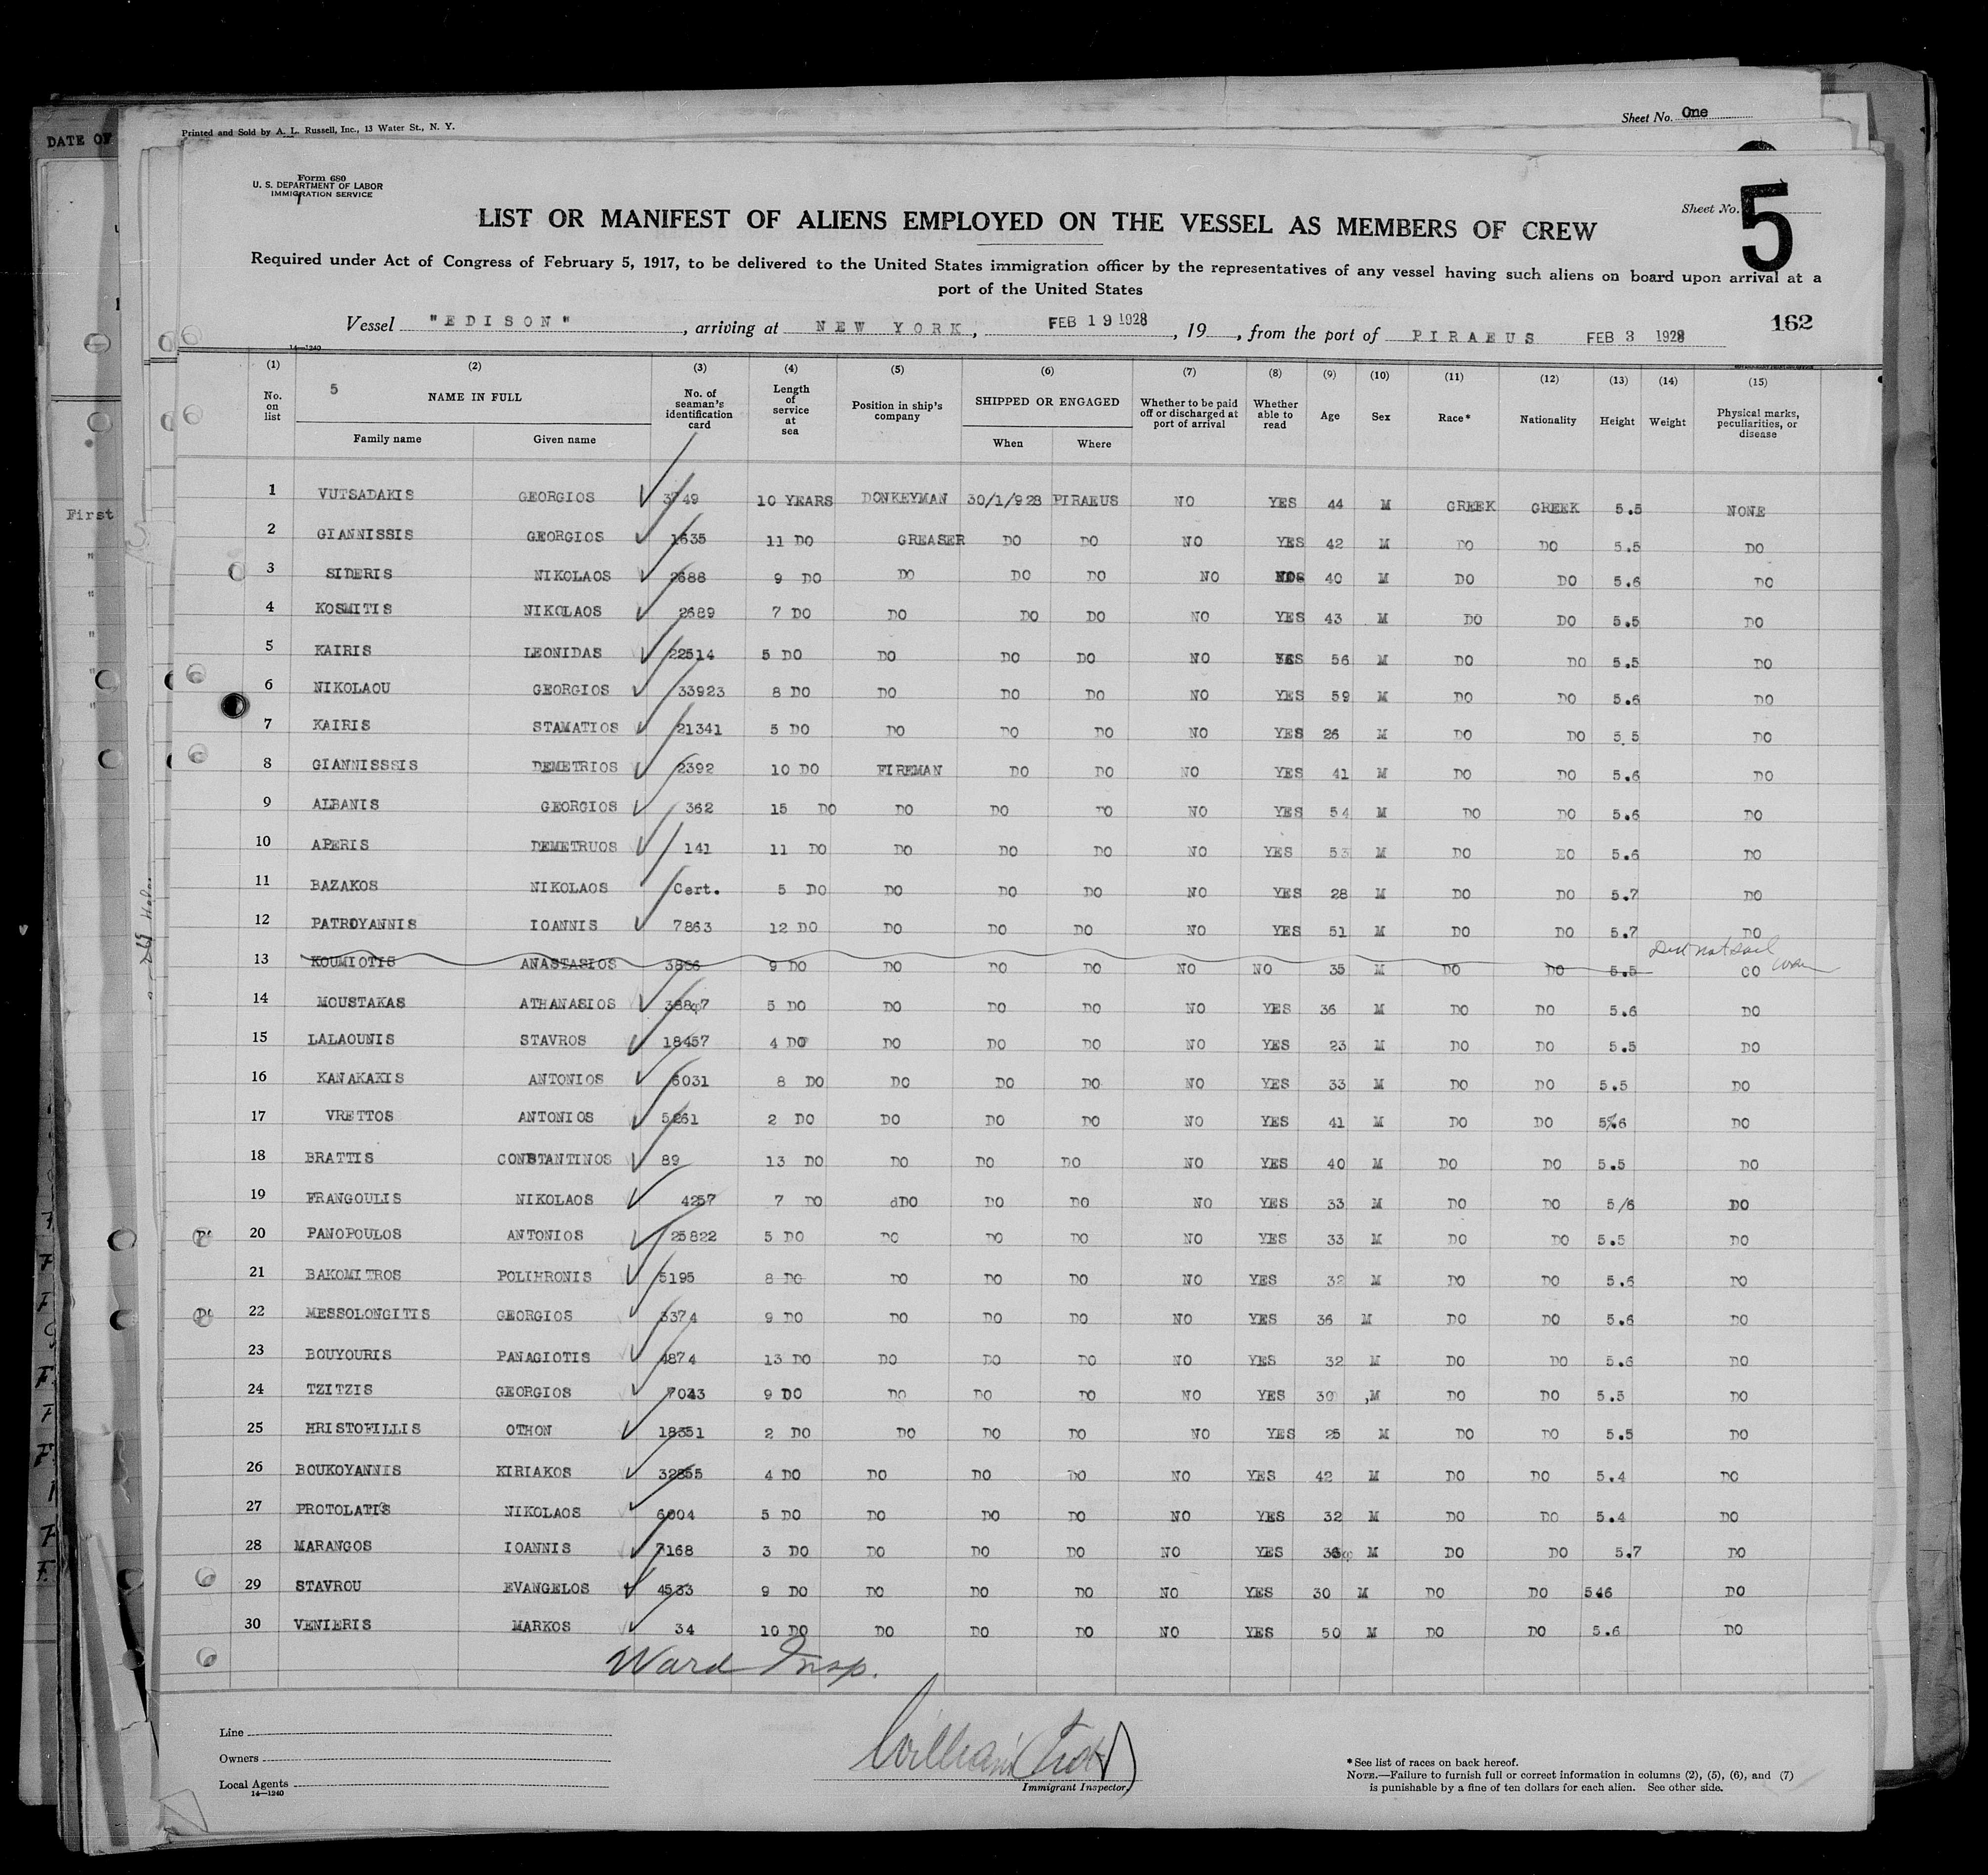 DATE OF
Printed and Sold by A. L. Russell, Inc., 13 Water St., N. Y.
Sheet No. One
Form 680
U. S. DEPARTMENT OF LABOR
IMMIGRATION SERVICE
Sheet No. 5
LIST OR MANIFEST OF ALIENS EMPLOYED ON THE VESSEL AS MEMBERS OF CREW
Required under Act of Congress of February 5, 1917, to be delivered to the United States immigration officer by the representatives of any vessel having such aliens on board upon arrival at a
port of the United States
Vessel "EDISON", arriving at NEW YORK, FEB 19 1928, 19, from the port of PIRAEUS FEB 3 1928 162
14—1240
(1) (2) (3) (4) (5) (6) (7) (8) (9) (10) (11) (12) (13) (14) (15)
No. on list 5 NAME IN FULL No. of seaman's identification card Length of service at sea Position in ship's company SHIPPED OR ENGAGED Whether to be paid off or discharged at port of arrival Whether able to read Age Sex Race* Nationality Height Weight Physical marks, peculiarities, or disease
Family name Given name When Where
First
1 VUTSADAKIS GEORGIOS 3749 10 YEARS DONKEYMAN 30/1/928 PIRAEUS NO YES 44 M GREEK GREEK 5.5 NONE
2 GIANNISSIS GEORGIOS 1635 11 DO GREASER DO DO NO YES 42 M DO DO 5.5 DO
3 SIDERIS NIKOLAOS 2688 9 DO DO DO DO NO 40 M DO DO 5.6 DO
4 KOSMITIS NIKOLAOS 2689 7 DO DO DO DO NO YES 43 M DO DO 5.5 DO
5 KAIRIS LEONIDAS 22514 5 DO DO DO DO NO YES 56 M DO DO 5.5 DO
6 NIKOLAOU GEORGIOS 33923 8 DO DO DO DO NO YES 59 M DO DO 5.6 DO
7 KAIRIS STAMATIOS 21341 5 DO DO DO DO NO YES 26 M DO DO 5.5 DO
8 GIANNISSSIS DEMETRIOS 2392 10 DO FIREMAN DO DO NO YES 41 M DO DO 5.6 DO
9 ALBANIS GEORGIOS 362 15 DO DO DO DO NO YES 54 M DO DO 5.6 DO
10 APERIS DEMETRUOS 141 11 DO DO DO DO NO YES 53 M DO DO 5.6 DO
11 BAZAKOS NIKOLAOS Cert. 5 DO DO DO DO NO YES 28 M DO DO 5.7 DO
12 PATROYANNIS IOANNIS 7863 12 DO DO DO DO NO YES 51 M DO DO 5.7 DO
Did not sail
13 KOUMIOTIS ANASTASIOS 3866 9 DO DO DO DO NO NO 35 M DO DO 5.5 CO
14 MOUSTAKAS ATHANASIOS 5 DO DO DO DO NO YES 36 M DO DO 5.6 DO
15 LALAOUNIS STAVROS 18457 4 DO DO DO DO NO YES 23 M DO DO 5.5 DO
16 KANAKAKIS ANTONIOS 6031 8 DO DO DO DO NO YES 33 M DO DO 5.5 DO
17 VRETTOS ANTONIOS 5261 2 DO DO DO DO NO YES 41 M DO DO 5.6 DO
18 BRATTIS CONSTANTINOS 89 13 DO DO DO DO NO YES 40 M DO DO 5.5 DO
19 FRANGOULIS NIKOLAOS 4257 7 DO dDO DO DO NO YES 33 M DO DO 5/6 DO
20 PANOPOULOS ANTONIOS 25822 5 DO DO DO DO NO YES 33 M DO DO 5.5 DO
21 BAKOMITROS POLIHRONIS 5195 8 DO DO DO DO NO YES 32 M DO DO 5.6 DO
22 MESSOLONGITIS GEORGIOS 3374 9 DO DO DO DO NO YES 36 M DO DO 5.6 DO
23 BOUYOURIS PANAGIOTIS 4874 13 DO DO DO DO NO YES 32 M DO DO 5.6 DO
24 TZITZIS GEORGIOS 7043 9 DO DO DO DO NO YES 30 ,M DO DO 5.5 DO
25 HRISTOFILLIS OTHON 18351 2 DO DO DO DO NO YES 25 M DO DO 5.5 DO
26 BOUKOYANNIS KIRIAKOS 32855 4 DO DO DO DO NO YES 42 M DO DO 5.4 DO
27 PROTOLATIS NIKOLAOS 6004 5 DO DO DO DO NO YES 32 M DO DO 5.4 DO
28 MARANGOS IOANNIS 7168 3 DO DO DO DO NO YES 36 M DO DO 5.7 DO
29 STAVROU EVANGELOS 4533 9 DO DO DO DO NO YES 30 M DO DO 546 DO
30 VENIERIS MARKOS 34 10 DO DO DO DO NO YES 50 M DO DO 5.6 DO
Ward Insp.
Line
Owners
Local Agents
14—1240
William
Immigrant Inspector
*See list of races on back hereof.
NOTE.—Failure to furnish full or correct information in columns (2), (5), (6), and (7)
is punishable by a fine of ten dollars for each alien. See other side.